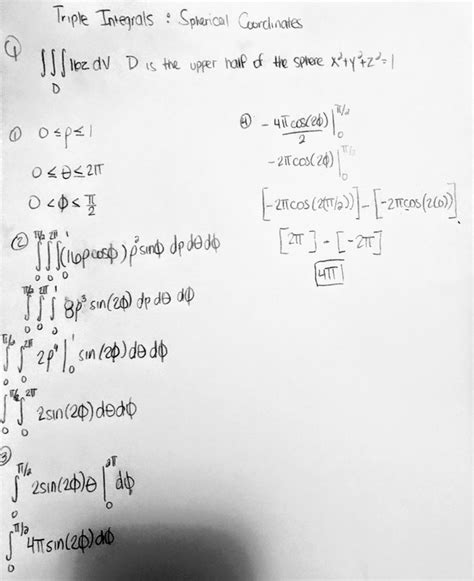 Triple Integrals : Spherical Coordinates
① ∭_D 16z dV D is the upper half of the sphere x²+y²+z²=1
① 0≤ρ≤1
0≤θ≤2π
0<φ≤π/2
② ∫₀^{π/2} ∫₀^{2π} ∫₀^1 (16ρcosφ)ρ²sinφ dρ dθ dφ
∫₀^{π/2} ∫₀^{2π} ∫₀^1 8ρ³ sin(2φ) dρ dθ dφ
∫₀^{π/2} ∫₀^{2π} 2ρ⁴|₀^1 sin(2φ) dθ dφ
∫₀^{π/2} ∫₀^{2π} 2sin(2φ) dθ dφ
③
∫₀^{π/2} 2sin(2φ)θ |₀^{2π} dφ
∫₀^{π/2} 4πsin(2φ) dφ
④ -4πcos(2φ)/2 |₀^{π/2}
-2πcos(2φ) |₀^{π/2}
[-2πcos(2(π/2))] - [-2πcos(2(0))]
[2π] - [-2π]
4π